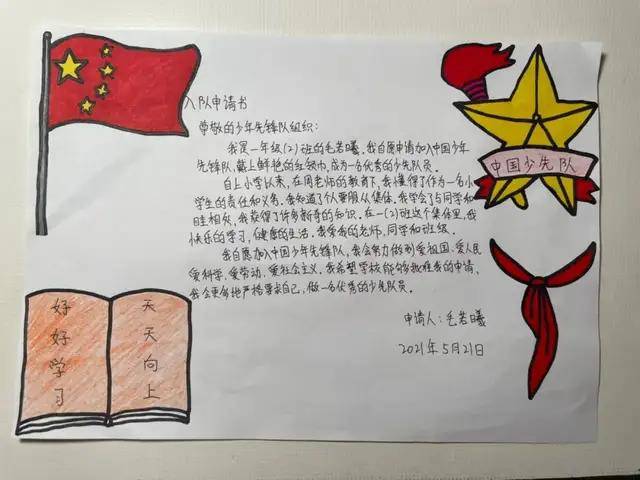 入队申请书
尊敬的少年先锋队组织：
我是一年级(2)班的毛若曦。我自愿申请加入中国少年
先锋队，戴上鲜艳的红领巾，成为一名优秀的少先队员。
自上小学以来，在周老师的教育下，我懂得了作为一名小
学生的责任和义务。我知道了个人要服从集体，我学会了与同学和
睦相处，我获得了许多新奇的知识。在一(2)班这个集体里，我
快乐的学习，健康的生活。我爱我的老师，同学和班级。
我自愿加入中国少年先锋队，我会努力做到爱祖国、爱人民
爱科学、爱劳动、爱社会主义。我希望学校能够批准我的申请，
我会更加地严格要求自己，做一名优秀的少先队员。
申请人：毛若曦
2021年5月21日
中国少先队
好好学习
天天向上